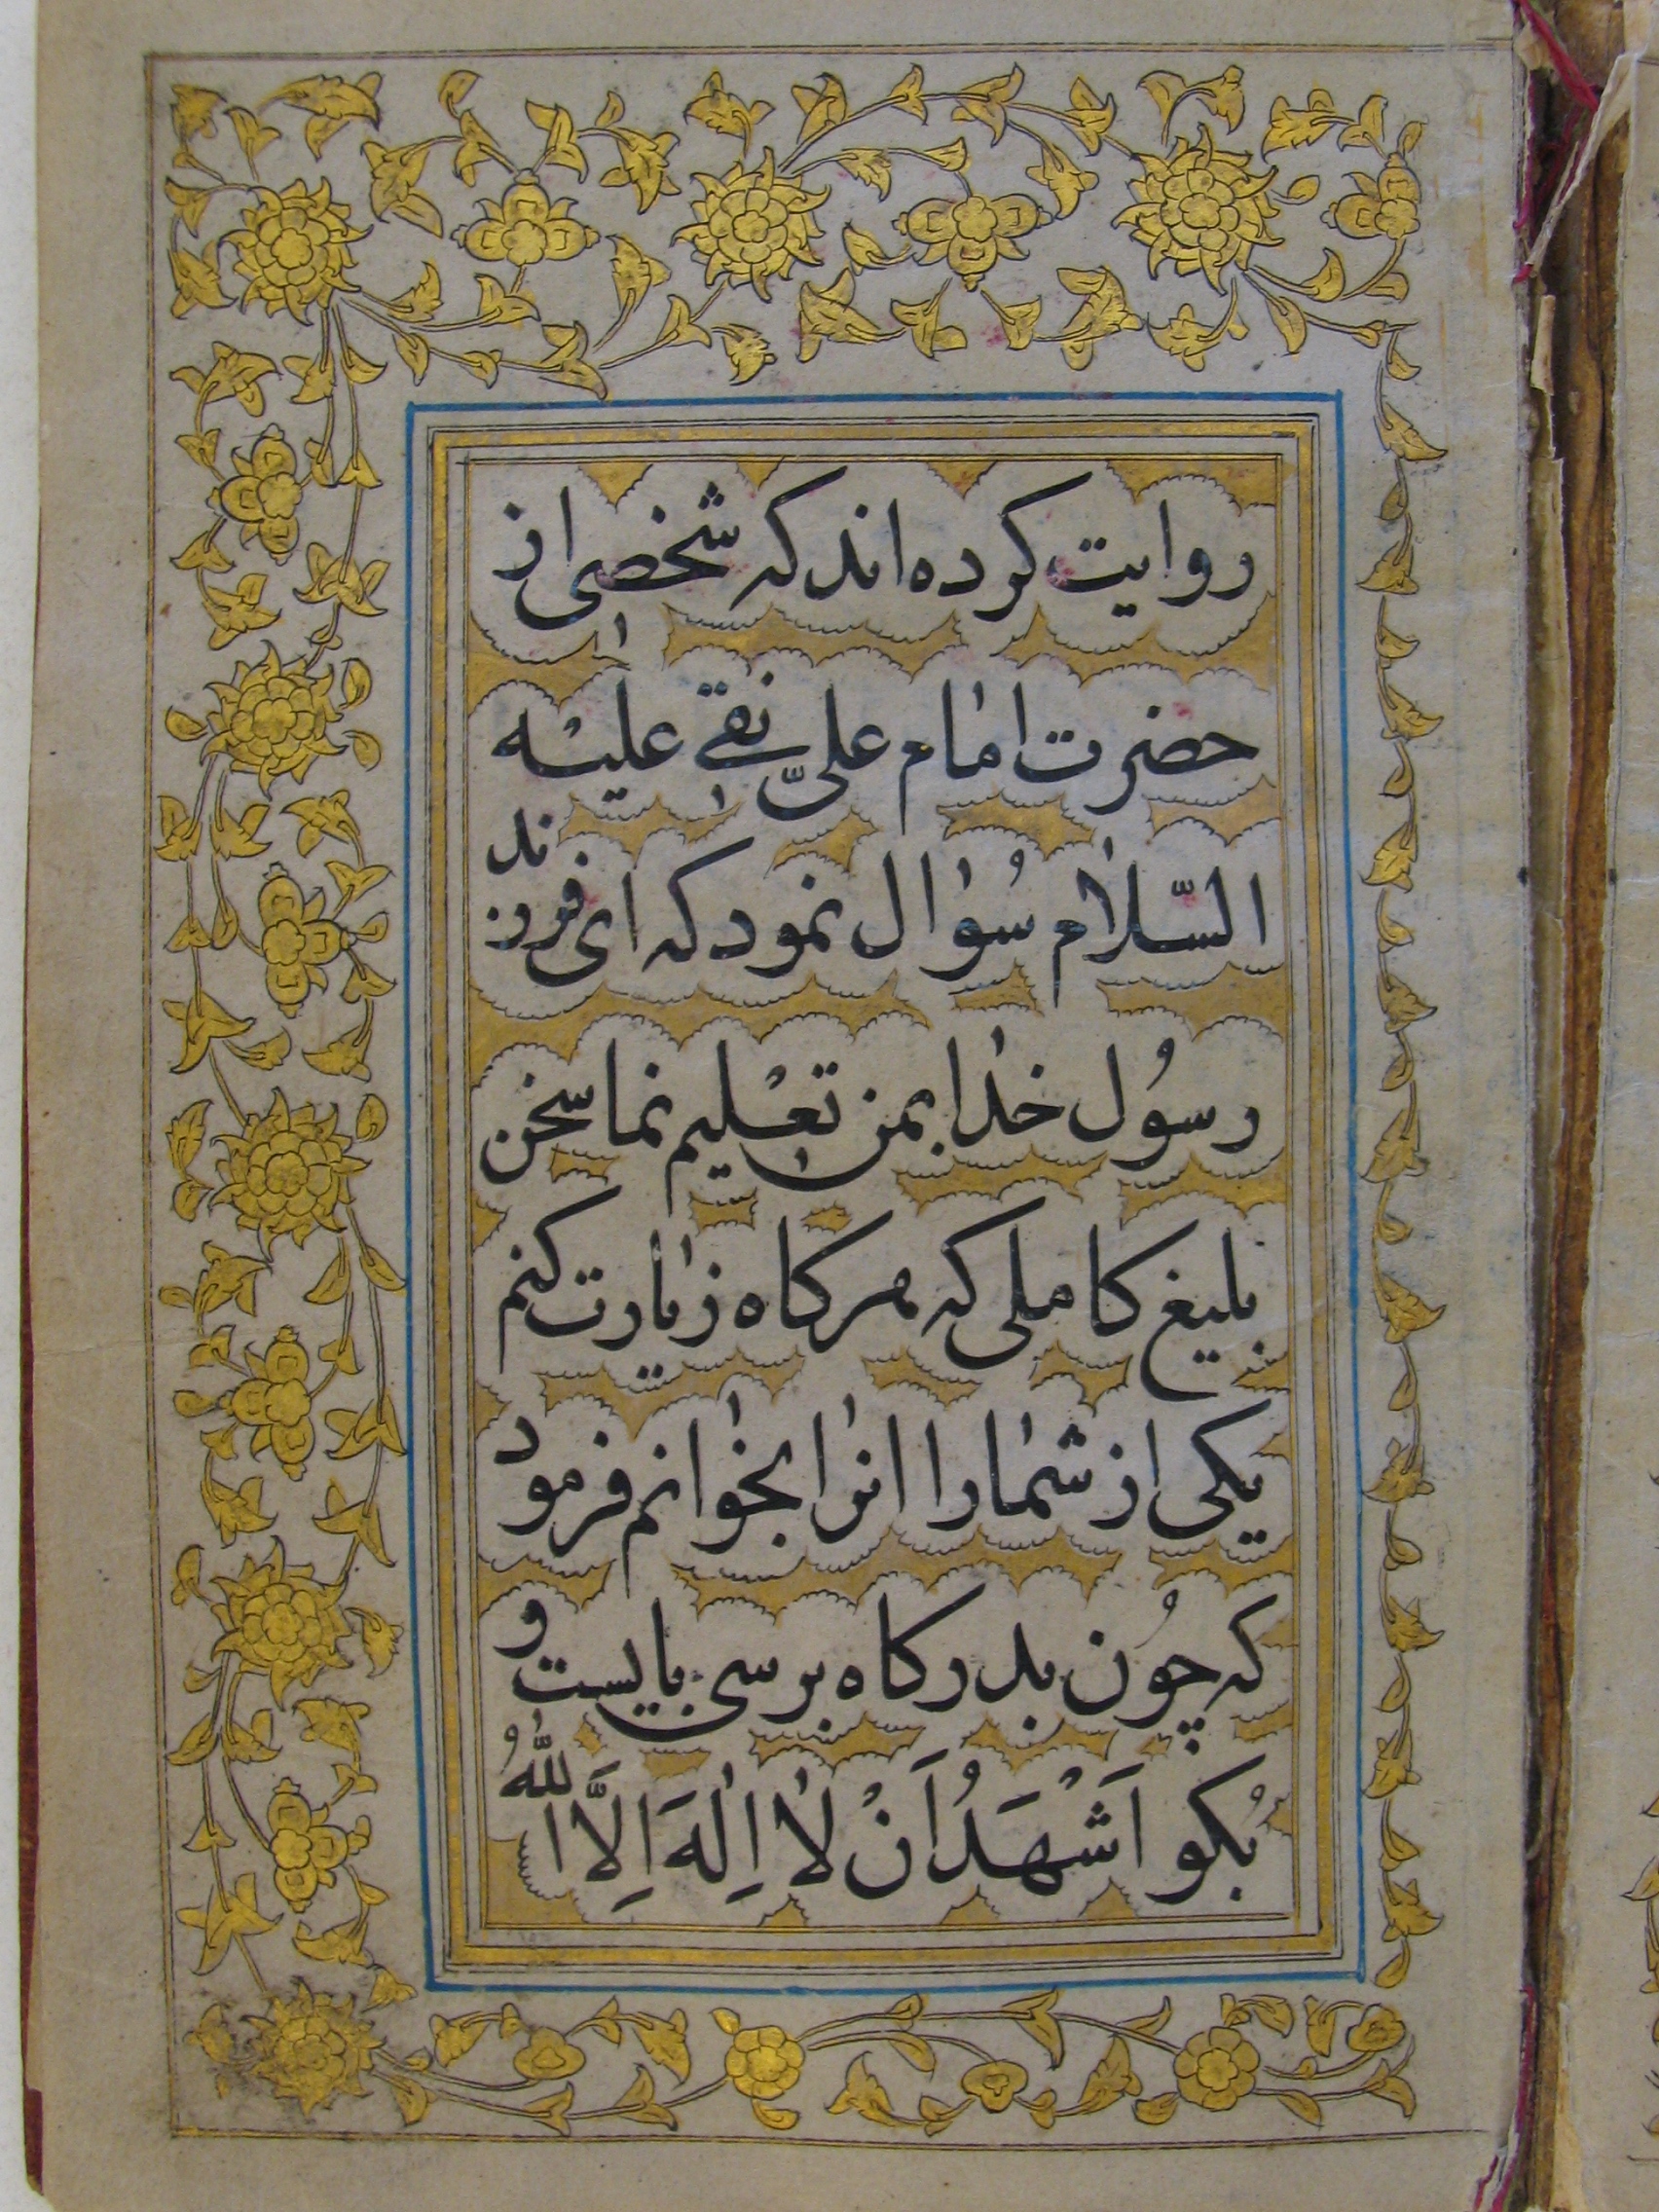 روایت کرده اند که شخصی از
حضرت امام علیّ نقی علیه
السّلام سُوال نمود که ای فرزند
رسُول خدا بمن تعْلیم نما سخن
بلیغ کاملی که هرکاه زیارت کنم
یکی از شما را انرا بخوانم فرمود
که چُون بدرکاه برسی بایست و
بُکو اَشْهَدُ اَنْ لا اِلٰهَ اِلَّا اللّٰهُ